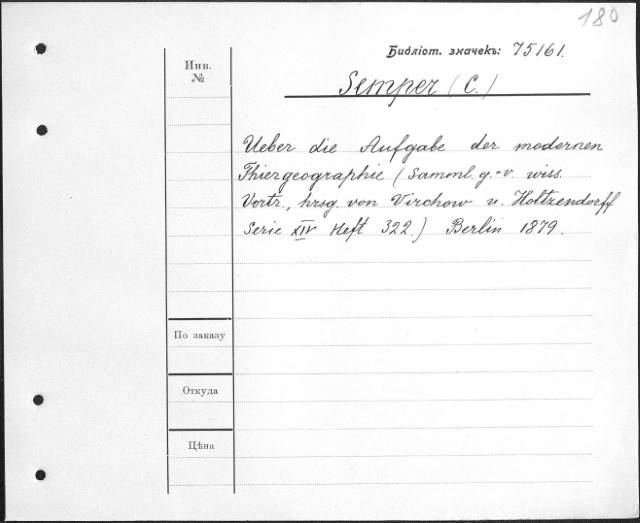 180
Библіот. значекъ: 75161.
Инв.
№
Semper (C.)
Ueber die Aufgabe der modernen
Thiergeographie (Samml. g.-v. wiss.
Vortr., hrsg. von Virchow u. Holtzendorff
Serie XIV Heft 322.) Berlin 1879.
По заказу
Откуда
Цѣна